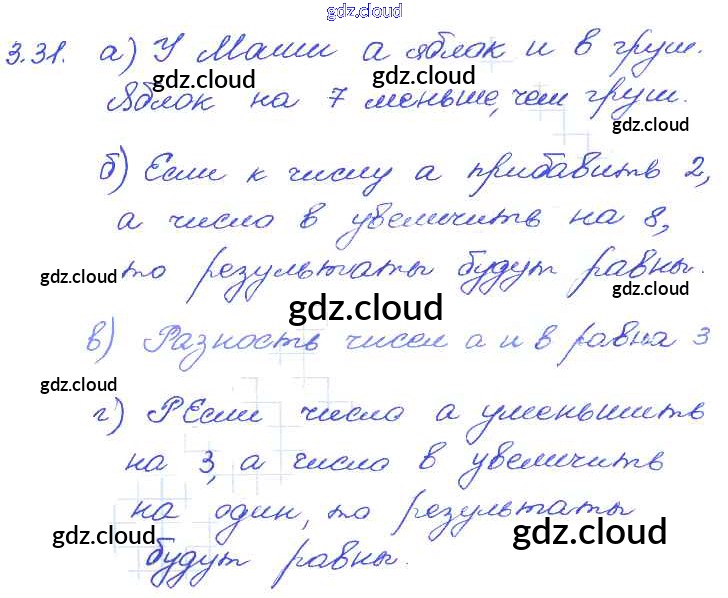 gdz.cloud
3.31. а) У Маши а яблок и в груш.
gdz.cloud gdz.cloud
Яблок на 7 меньше, чем груш.
gdz.cloud
б) Если к числу а прибавить 2,
а число в увеличить на 8,
gdz.cloud то результаты будут равны.
gdz.cloud
gdz.cloud
в) Разность чисел а и в равна 3
gdz.cloud
г) РЕсли число а уменьшить
на 3, а число в увеличить
на один, то результаты
gdz.cloud gdz.cloud
будут равны.